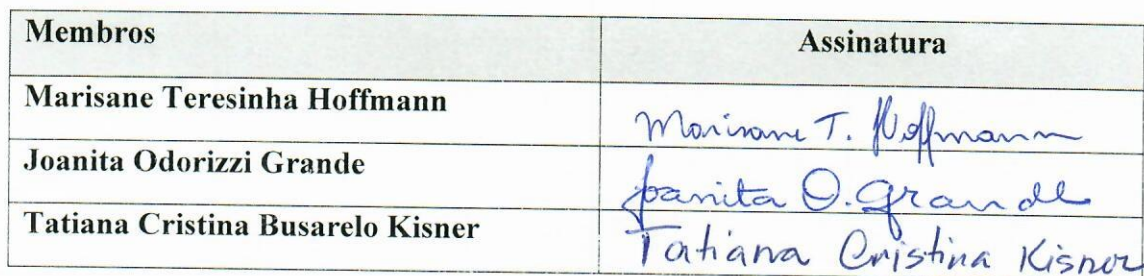 Membros Assinatura
Marisane Teresinha Hoffmann Marisane T. Hoffmann
Joanita Odorizzi Grande Joanita O. Grande
Tatiana Cristina Busarelo Kisner Tatiana Cristina Kisner